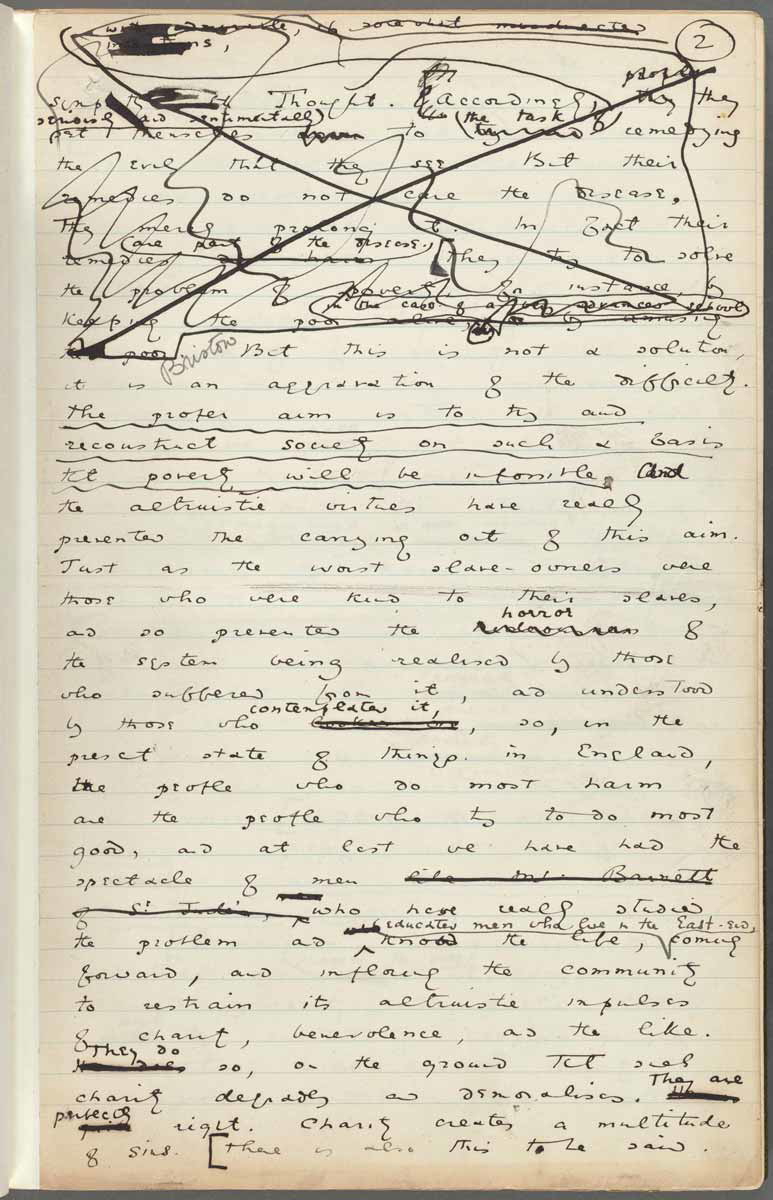 with admirable, if somewhat misdirected
intentions,
2
simp with Thought. Accordingly, they
seriously and sentimentally (the task
set themselves to remedying
the evil that they see But their
remedies do not cure the disease,
They merely prolong it. In fact their
(are part of the disease.)
remedies They try to solve
the problem of poverty, for instance, by
in the case of a very advanced school
keeping the poor alive, or by amusing
the poor Briston But this is not a solution,
it is an aggravation of the difficulty.
The proper aim is to try and
reconstruct society on such a basis
tht poverty will be impossible. And
the altruistic virtues have really
prevented the carrying out of this aim.
Just as the worst slave-owners were
those who were kind to their slaves,
horror
and so prevented the of
the system being realised by those
who suffered from it, and understood
contemplated it,
by those who looked on, so, in the
present state of things in England,
the people who do most harm
are the people who try to do most
good, and at last we have had the
spectacle of men like Mr. Barnett
of St Jude's, who have really studied
educated men who live in the East-End,
the problem and know the life, coming
forward, and imploring the community
to restrain its altruistic impulses
of charity, benevolence, and the like.
They do
He does so, on the ground tht such
charity degrades and demoralises. They are
perfectly
quite right. Charity creates a multitude
of sins. [There is also this to be said.